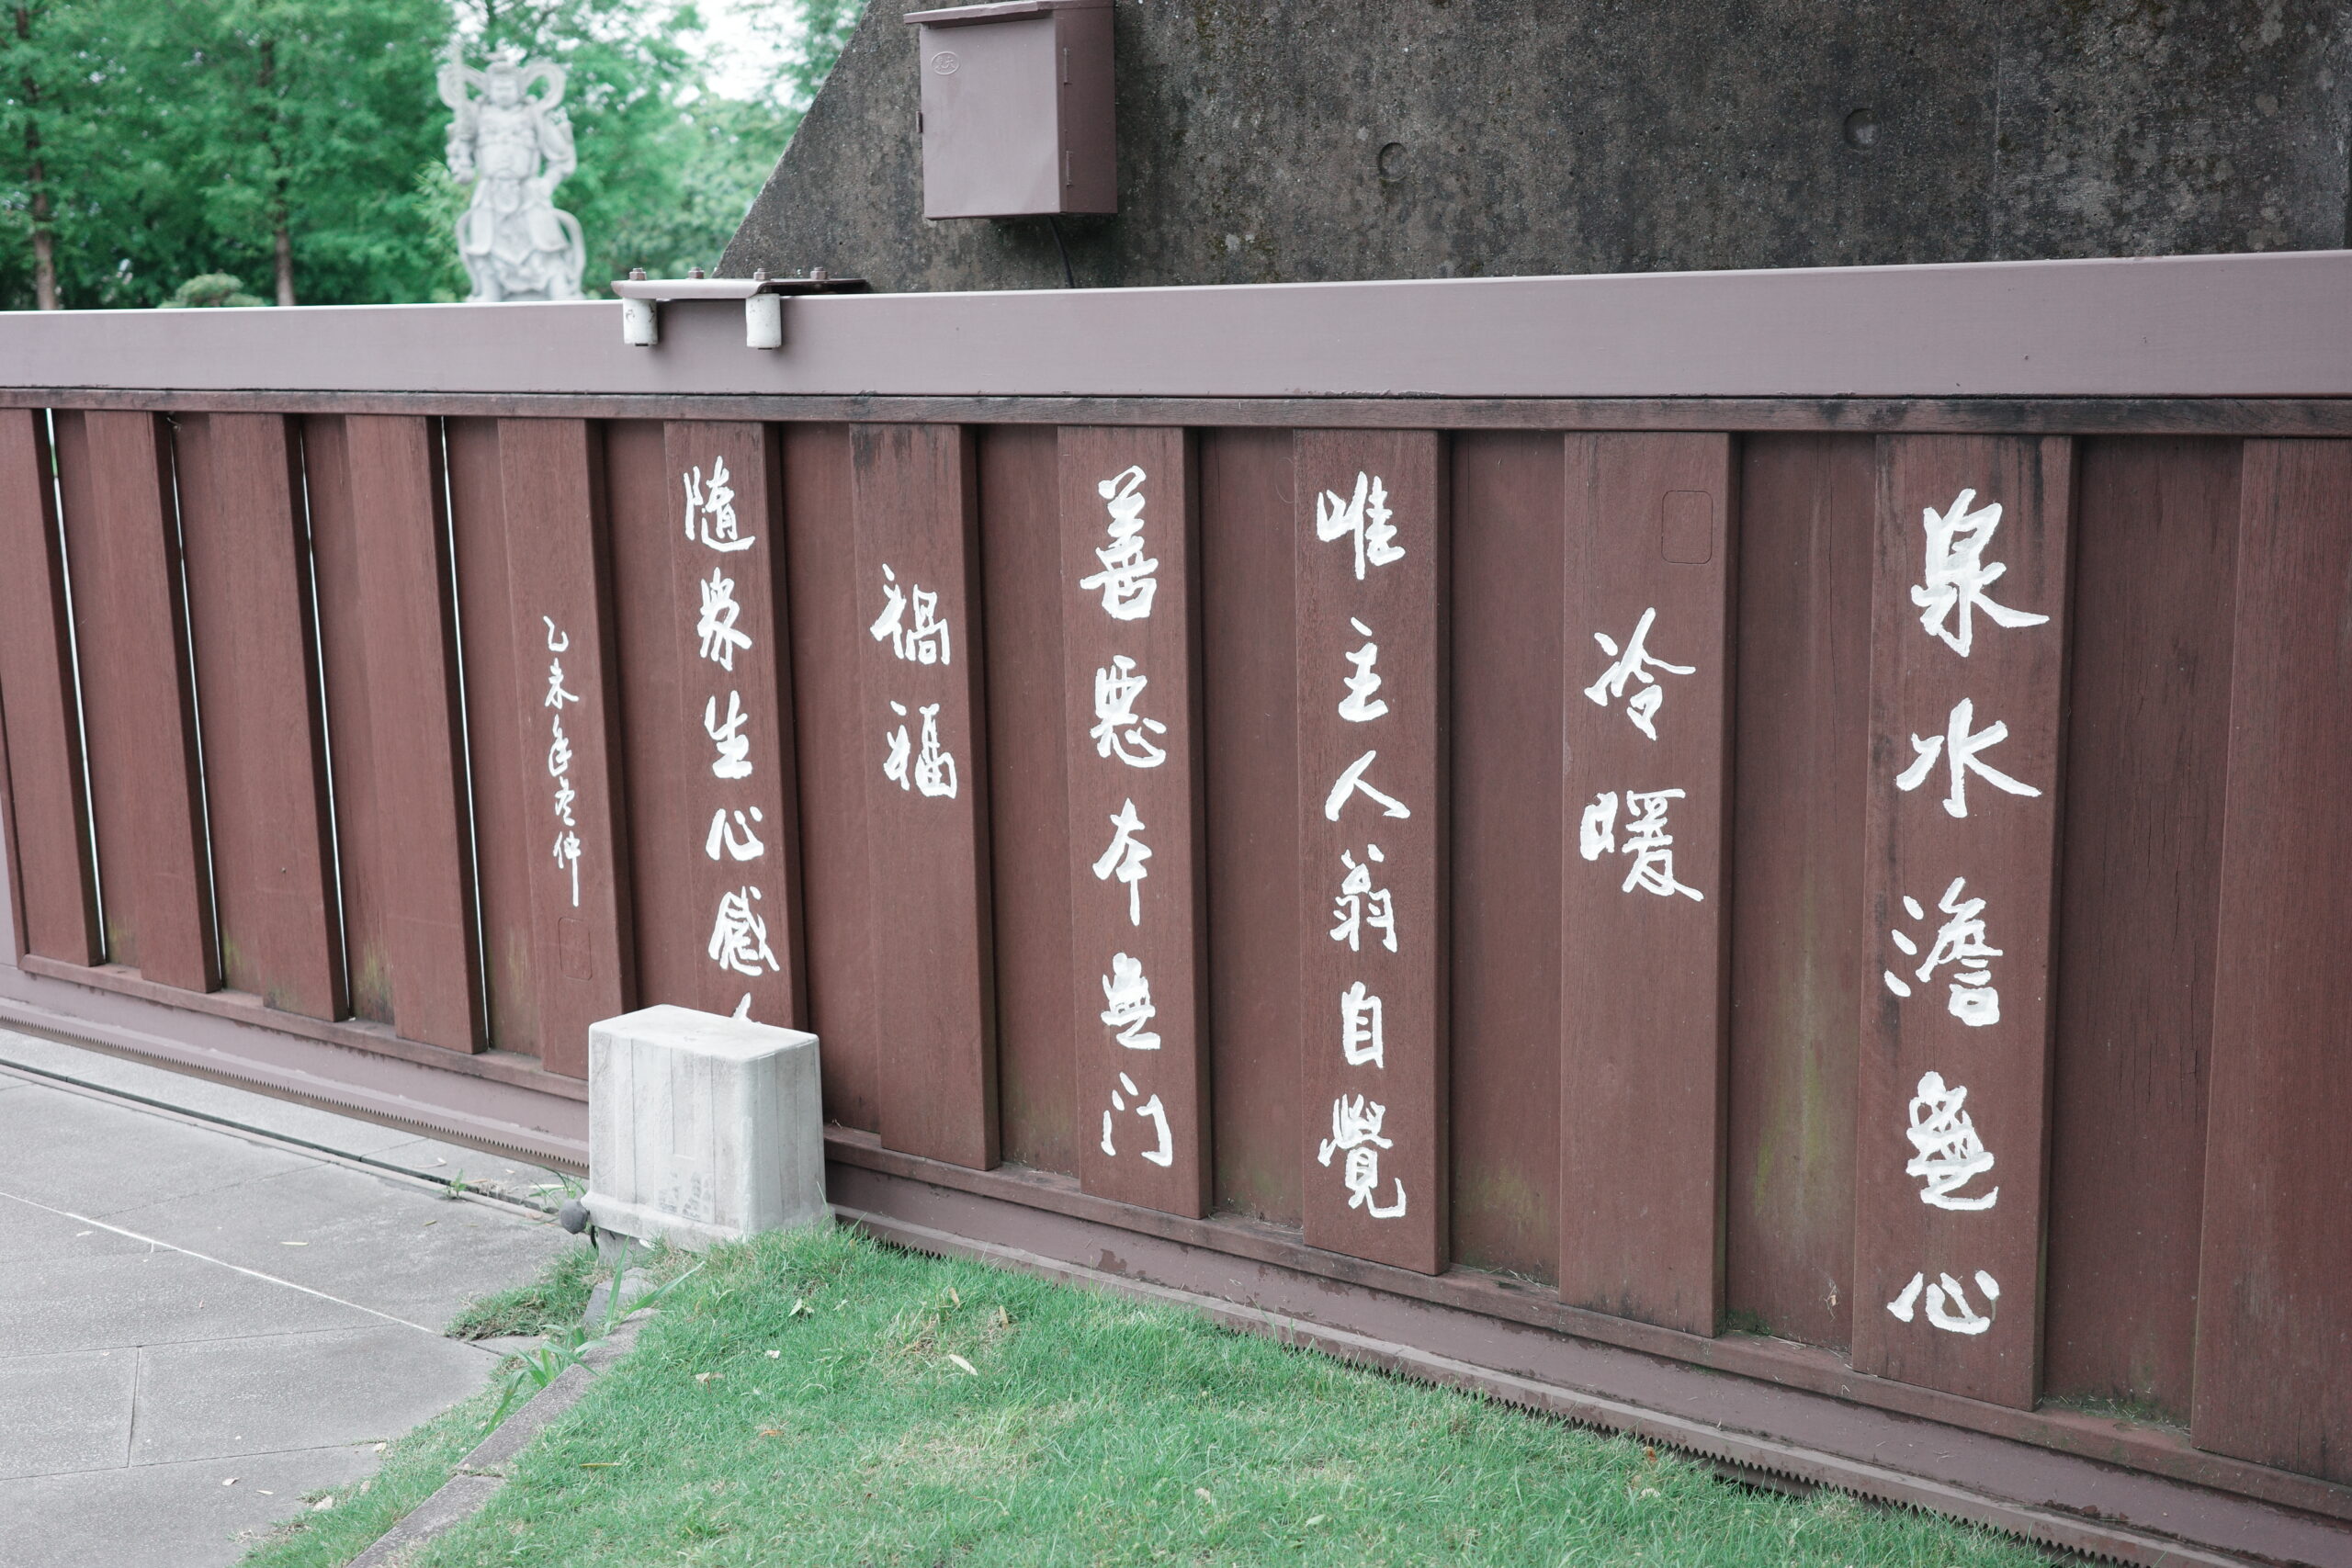 泉水澹無心
冷暖
唯主人翁自覺
善惡本無門
禍福
隨眾生心感
乙未年
仲